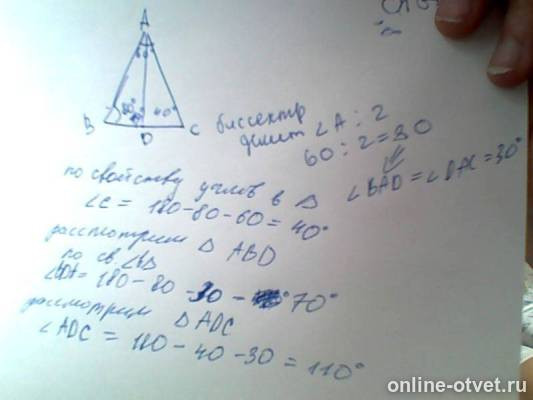 A
B
D
C
80°
40°
биссектр
делит ∠A : 2
60 : 2 = 30
∠BAD = ∠DAC = 30°
по свойству углов в △
∠C = 180 - 80 - 60 = 40°
рассмотрим △ ABD
по св. ∠△
∠BDA = 180 - 80 - 30 - 70°
рассмотрим △ ADC
∠ADC = 180 - 40 - 30 = 110°
online-otvet.ru